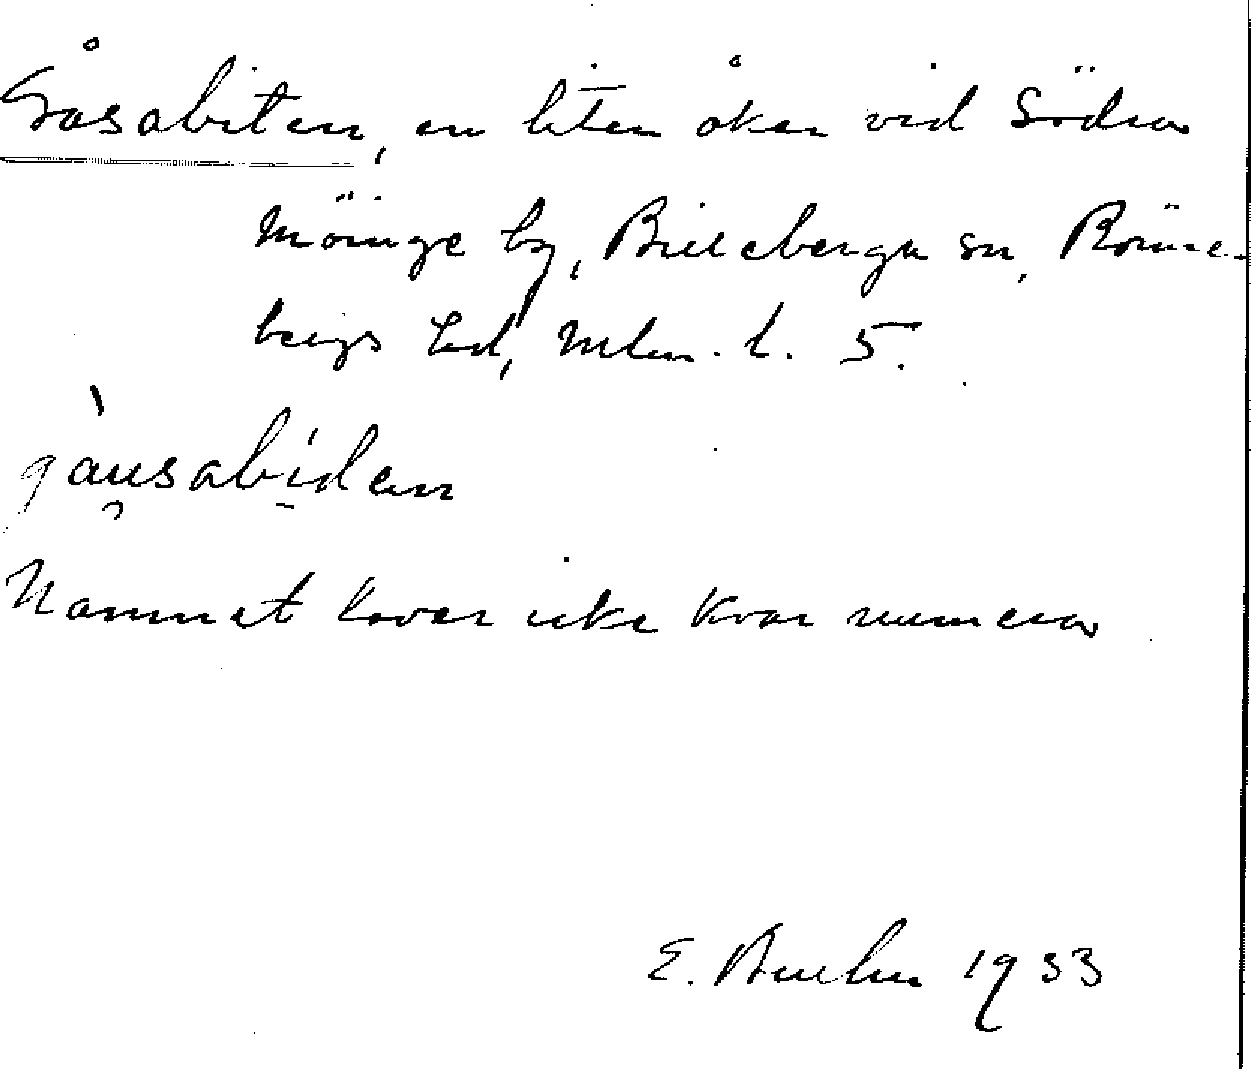 Gåsabiten, en liten åker vid Södra
Möinge by, Billeberga sn, Rönne-
bergs hd, Mlm. l. 5.
gàusabiden
Namnet lever icke kvar numera
E. 1933